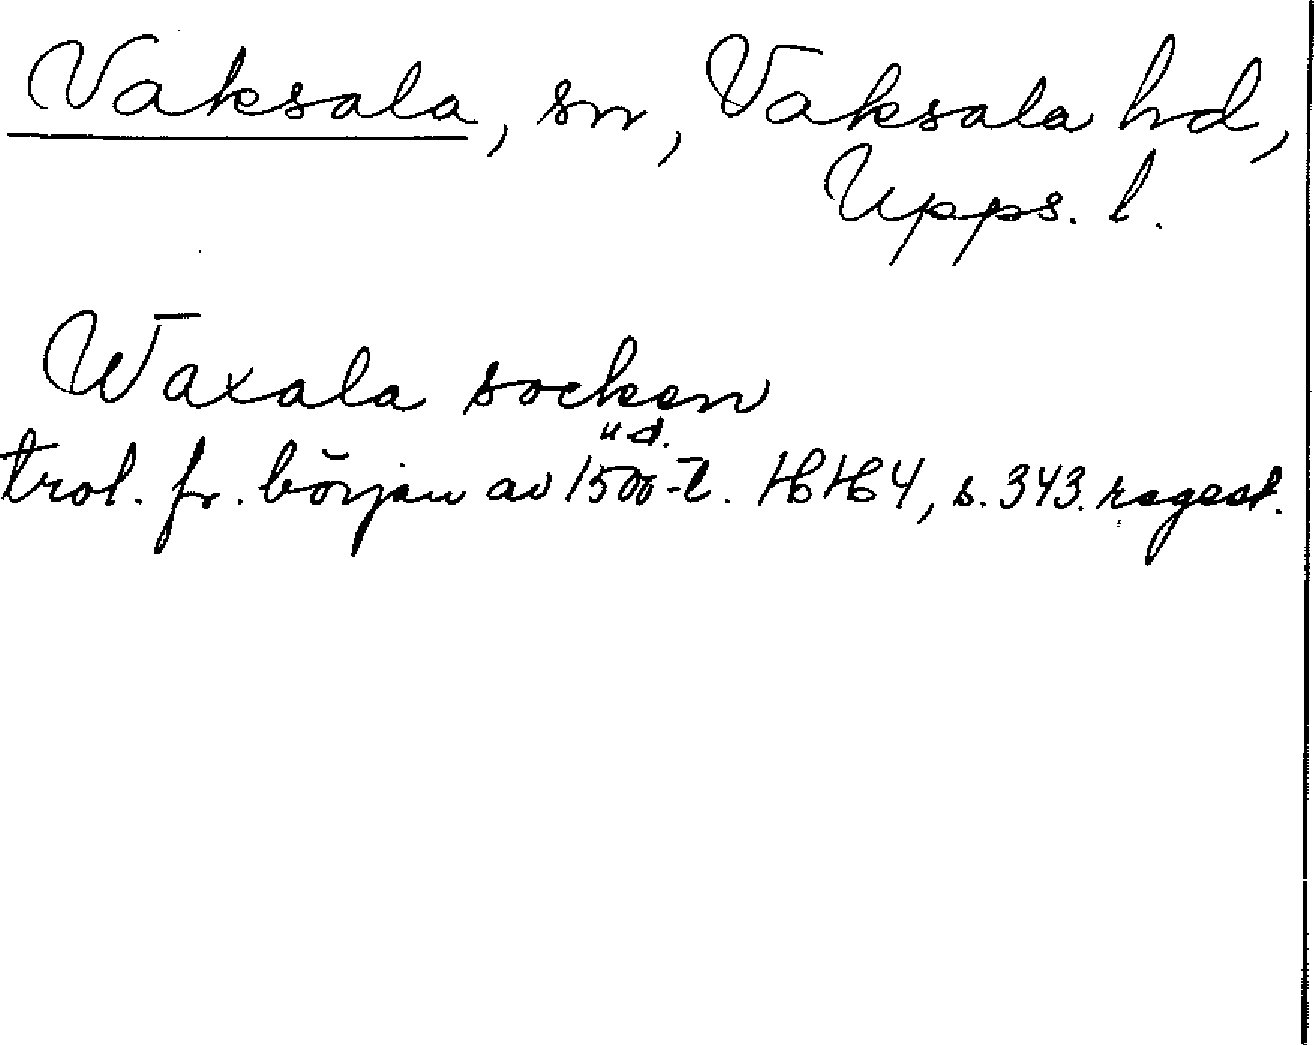 Vaksala, sn, Vaksala hd,
Upps. l.
Waxala socken
u d.
trol. fr. början av 1500-t. HH 4, s. 343. regest.